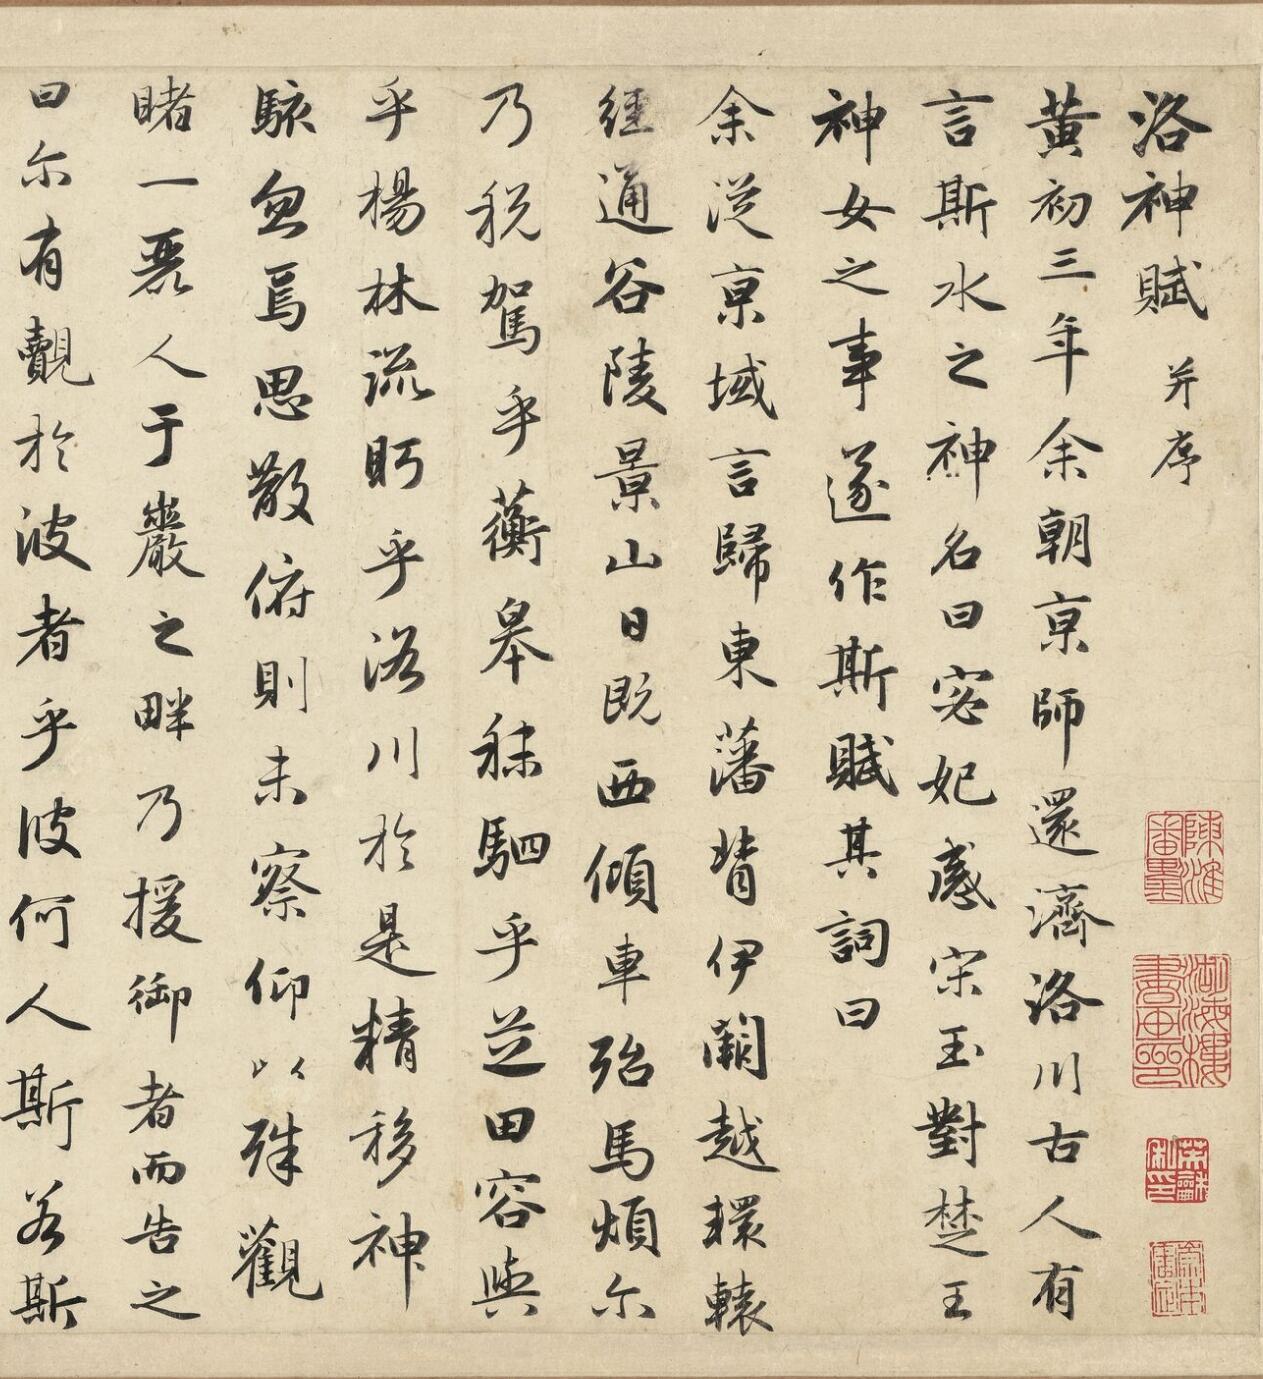 洛神賦 并序
黃初三年余朝京師還濟洛川古人有
言斯水之神名曰宓妃感宋玉對楚王
神女之事遂作斯賦其詞曰
余從京域言歸東藩背伊闕越轘轅
經通谷陵景山日既西傾車殆馬煩尒
乃稅駕乎蘅皋秣駟乎芝田容與
乎楊林流眄乎洛川於是精移神
駭忽焉思散俯則未察仰以殊觀
睹一麗人于巖之畔乃援御者而告之
曰尒有覿於彼者乎彼何人斯若斯